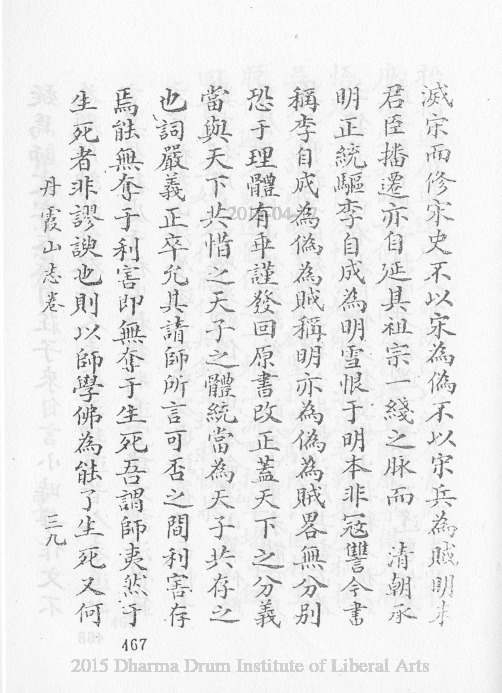 滅宗而修宋史不以宋為偽不以宋兵為賊明末
君臣播遷亦自延其祖宗一綫之脉而 清朝承
明正統驅李自成為明雪恨于明本非冦讐今書
稱李自成為偽為賊稱明亦為偽為賊畧無分別
恐于理體有乖謹發回原書改正葢天下之分義
當與天下共惜之天子之體統當為天子共存之
也詞嚴義正卒允其請師所言可否之間利害存
焉能無奪于利害即無奪于生死吾謂師夷然于
生死者非謬諛也則以師學佛為能了生死又何
丹霞山志卷
三九
467
2015 Dharma Drum Institute of Liberal Arts